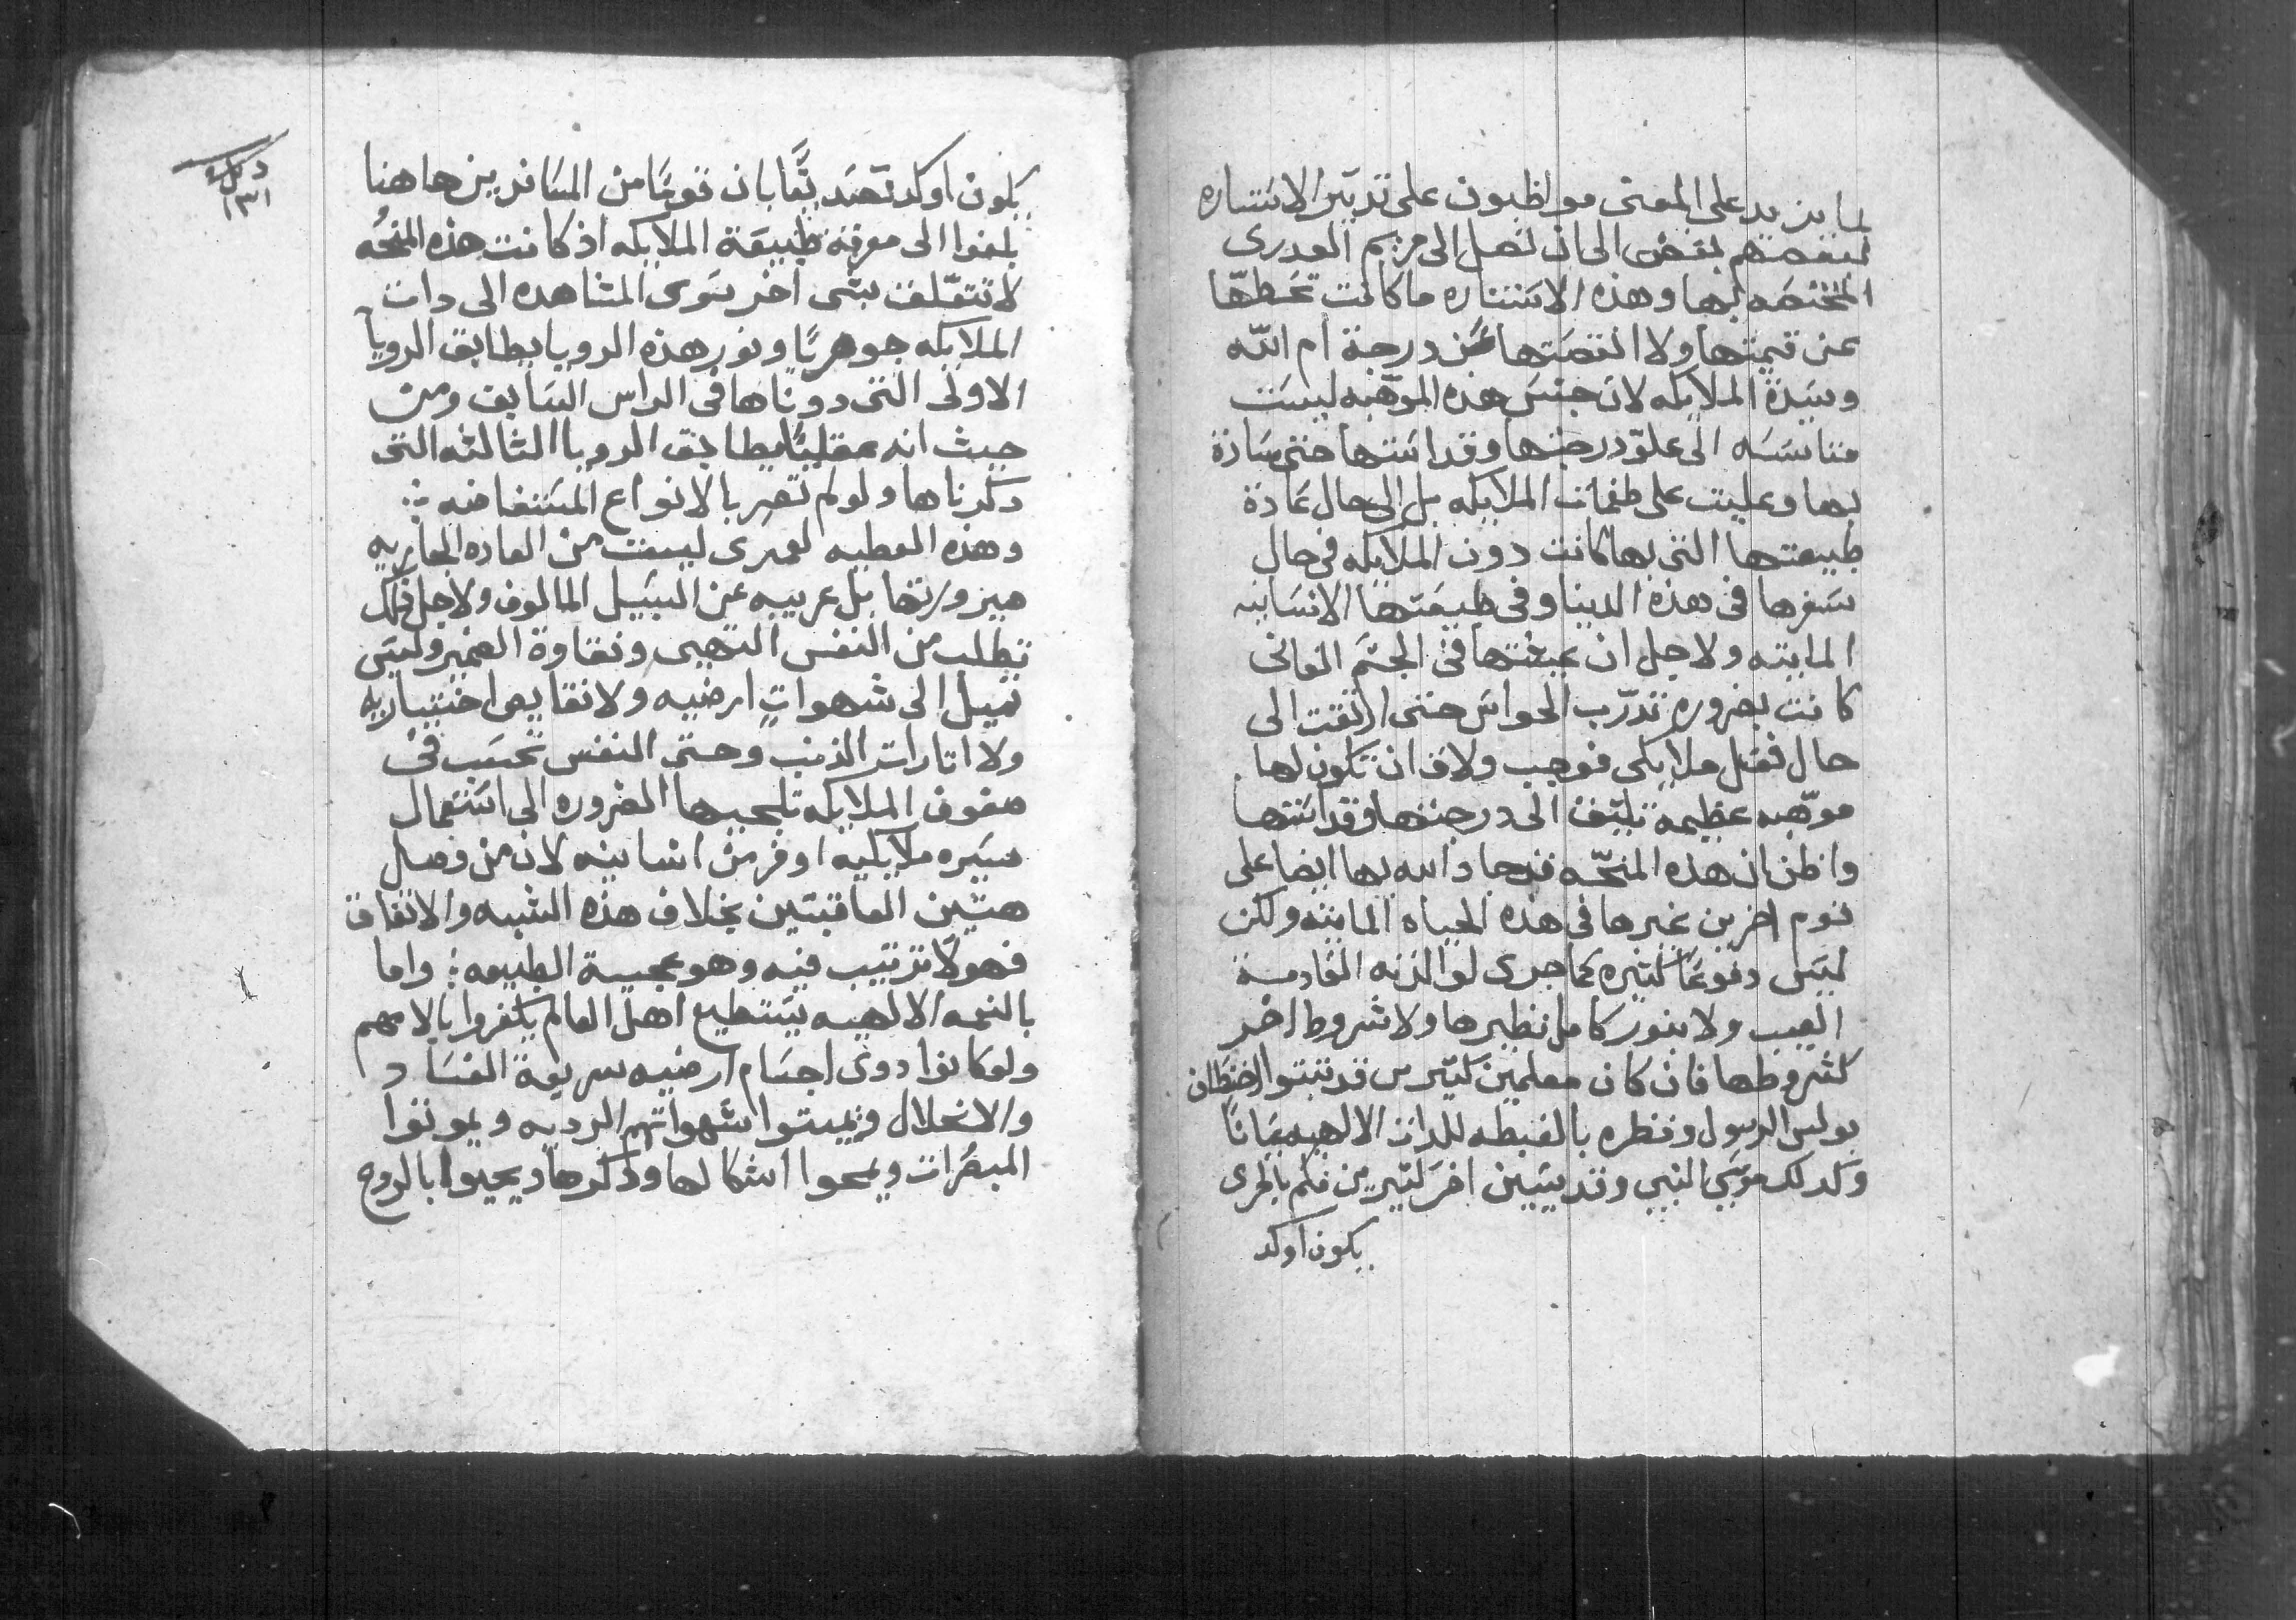 لما يزيد على المعنى مواظبون على تدبير الاستناره
لبعضهم بعض الى ان تصل الى مريم العدرى
المختصه بها وهذه الاستناره ما كانت تحطها
عن قيمتها ولا انقصتها عن درجة ام الله
وسيدة الملايكه لان جنس هذه الموهبه ليست
مناسسه الى علو درجتها وقداستها حتى سادة
بها وعليت على طغمات الملايكه بل الى حال عادة
طبيعتها التى بها كانت دون الملايكه فى حال
سفرها فى هذه الدينا وفى طبيعتها الانسانيه
المايته ولاجل ان عيشتها فى الجسم الفانى
كانت بضروره تدرّب الحواس حتى ارتقت الى
حال فعل ملايكى فوجب ولاق ان تكون لها
موهبه عظيمة تليق الى درجتها وقداستها
واظن ان هذه المنحه قد جاد الله بها ايضا على
قوم اخرين غيرها فى هذه الحياه المايته ولكن
ليس دفوعًا كثيره كما جرى لوالدته القادمة
العيب ولا بنور كامل نظيرها ولا شروط اخر
كشروطها فان كان معلمين كثيرين قد تبتوا لخظان
بولس الرسول ونظره بالغبطه للدات الالهيه عيانًا
وكدلك موسى النبى وقديسين اخر كثيرين فلم بالحرى
يكون اوكد
دكر
١٣١
يكون اوكد تصديقًا بان قومًا من المسافرين هاهنا
بلغوا الى معرفة طبيعة الملايكه اذ كانت هذه المنحه
لا تتعلق بشى اخر سوى المشاهده الى دات
الملايكه جوهريًا ونور هذه الرويا يطابق الرويا
الاولى التى دوناها فى الراس السابق ومن
حيث انه عقليًا يطابق الرويا الثالثه التى
دكرناها ولو لم تصير بالانواع المستفاضه
وهذه العطيه لعمرى ليست من العاده الجاريه
صيرورتها بل غريبه عن السبيل المالوف ولاجل ذلك
تطلب من النفس التهيى ونقاوة الضمير وليس
تميل الى شهوات ارضيه ولا نقايص اختياريه
ولا اتارات الذنب وحتى النفس تحسب فى
صفوف الملايكه تلجيها الضروره الى استعمال
سيره ملايكيه اوفر من انسانيه لان من وصل
هتين العاقبتين بخلاف هذه الشبه والاتفاق
فهو لا ترتيب فيه وهو عجيبة الطبيعه واما
بالنعمه الالهيه يستطيع اهل العالم يكفروا بالامهم
ولو كانوا دوى اجسام ارضيه سريعة الفساد
والانحلال ويميتوا شهواتهم الرديه ويموتوا
المبصرات ويمحوا اشكالها ودكرها ويحيوا بالروح